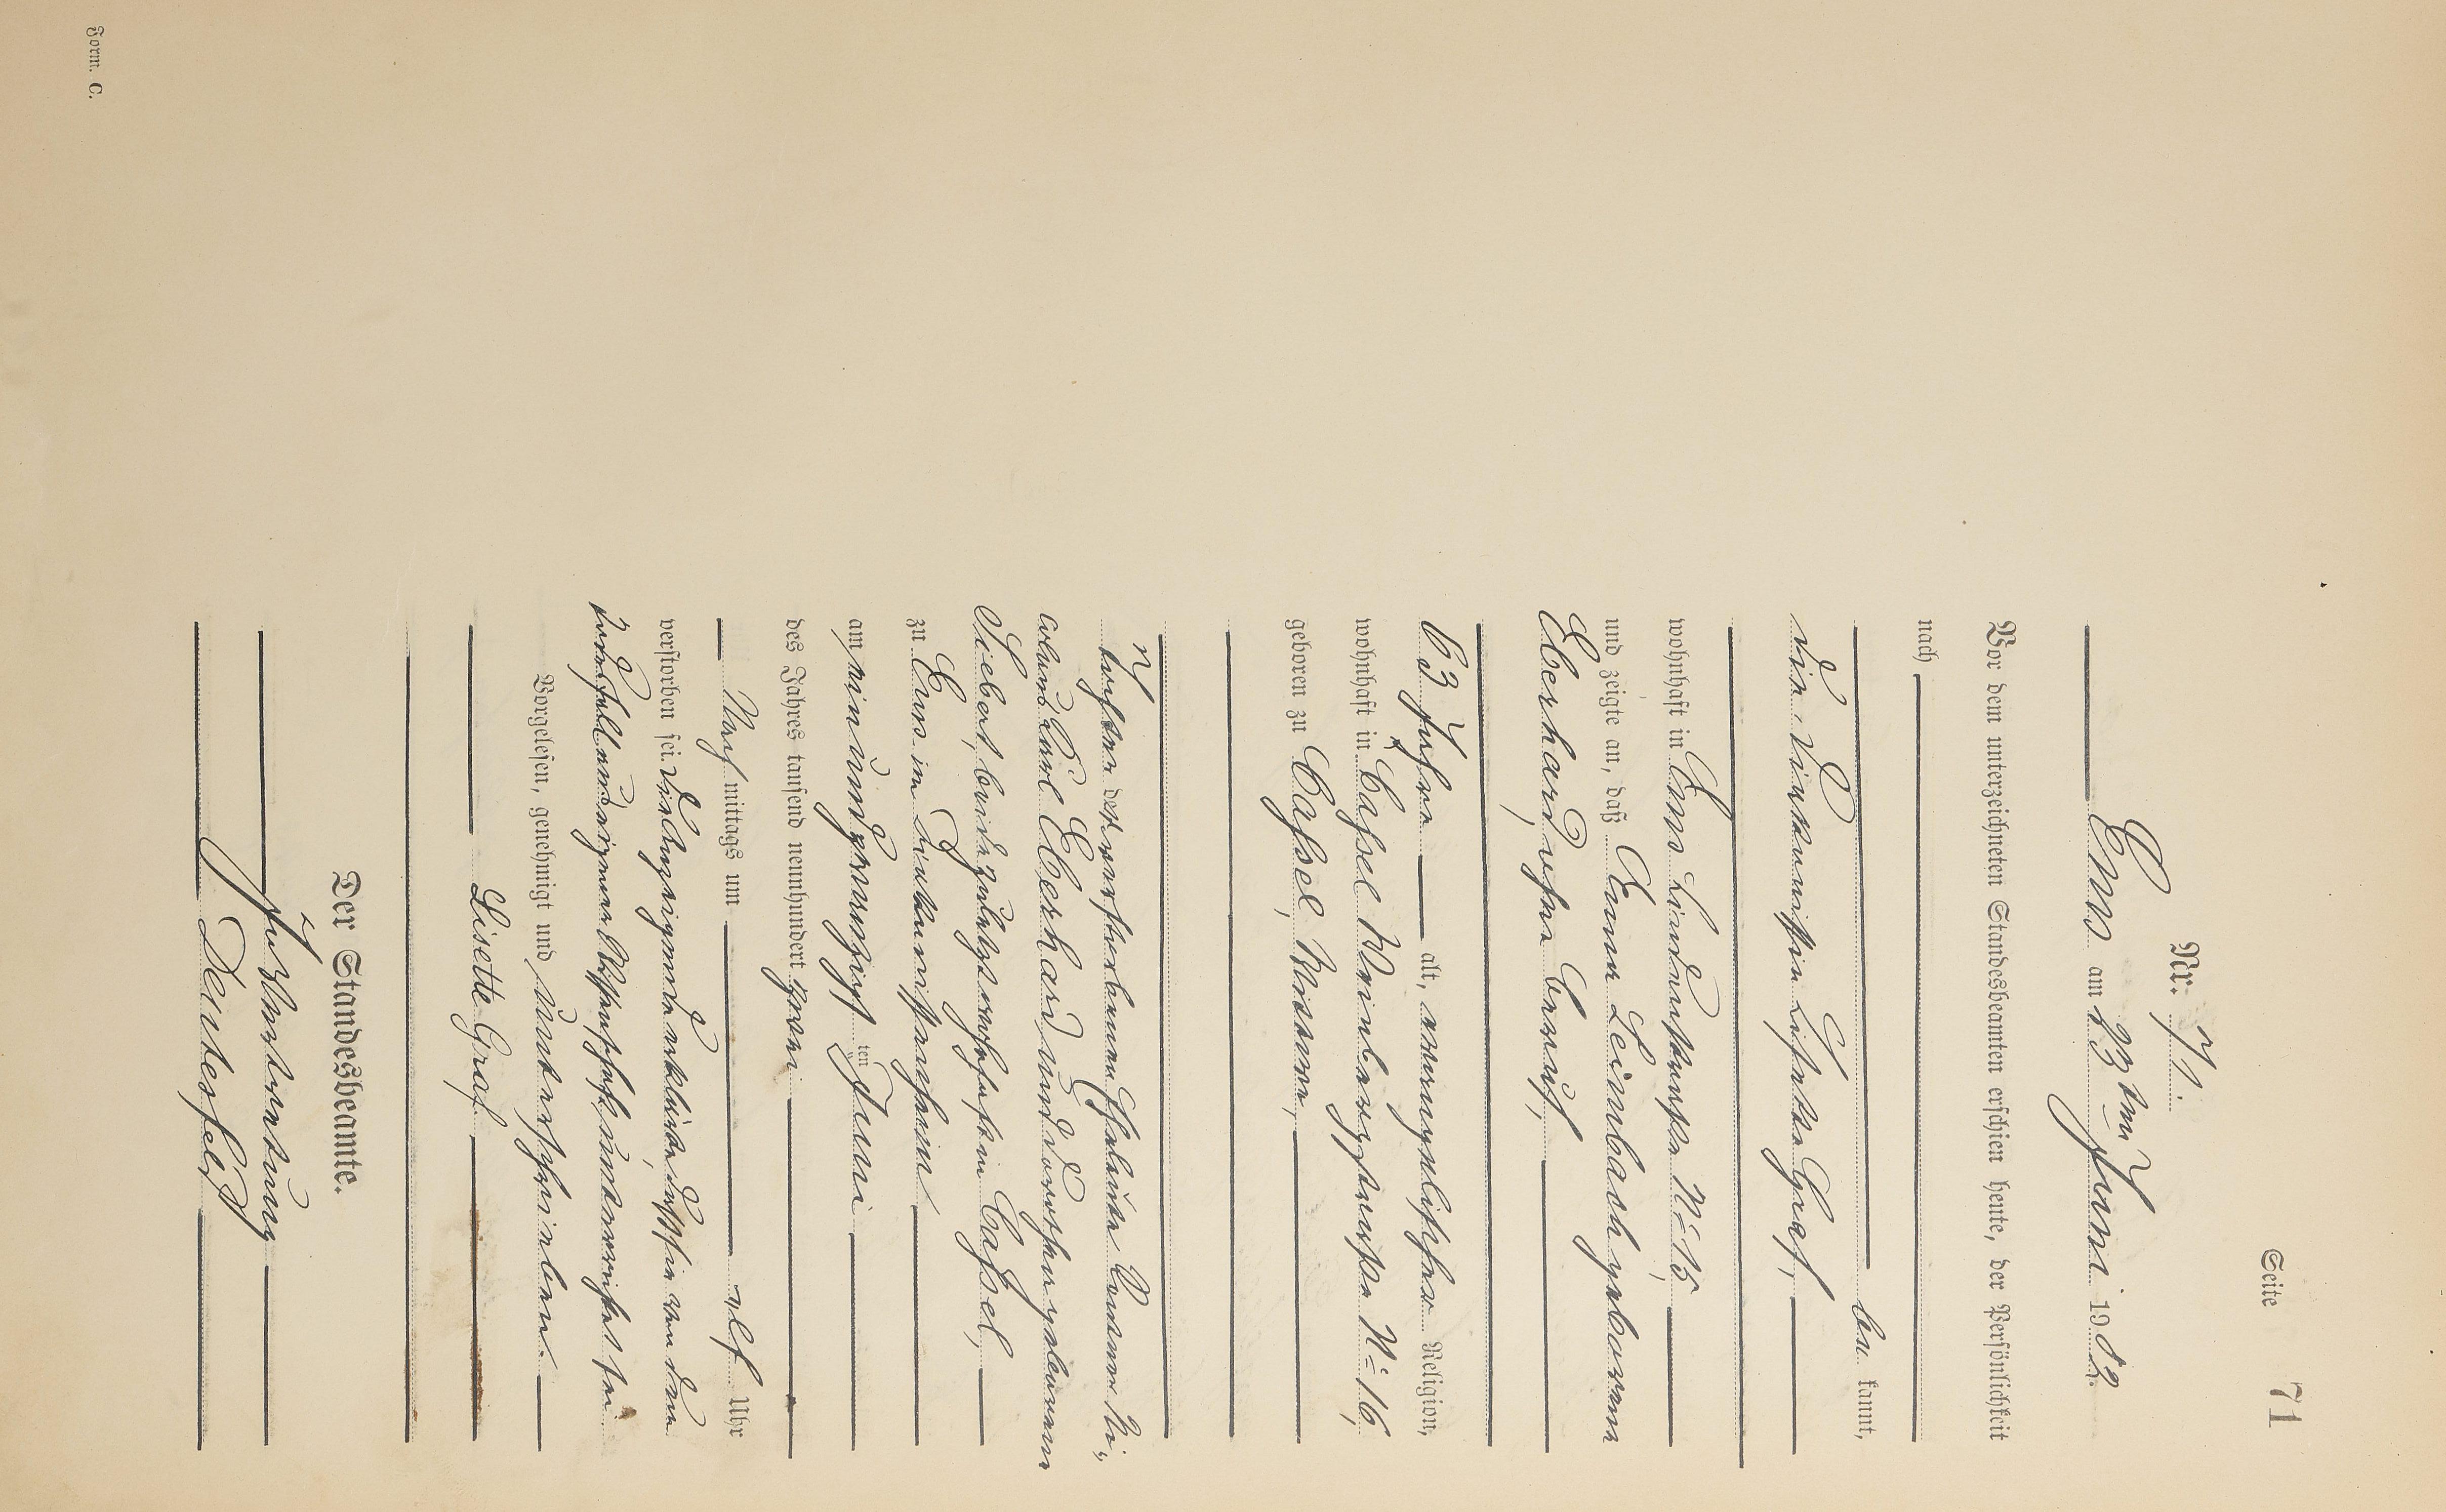 Seite 71
Nr. 71.
Ems am 23ten Juni 1902.
Vor dem unterzeichneten Standesbeamten erschien heute, der Persönlichkeit
nach
be kannt,
die Diakonissin Lisette Graf,
wohnhaft in Ems
und zeigte an, daß Leimbach geborene
Eberhard, ohne Beruf,
63 Jahre alt, evangelischer Religion,
wohnhaft in Cassel Weinbergstraße No 16,
geboren zu Cassel, Witwe,
Tochter der verstorbenen Eheleute
Eberhard und Dorothea geborenen
Siebert, beide zuletzt wohnhaft in Cassel,
zu Ems im Diakonissenheim
am einundzwanzigsten Juni
des Jahres tausend neunhundert zwei
Nach mittags um elf Uhr
verstorben sei. Die Anzeigende erklärte, daß sie von dem
Todesfall aus eigener Wissenschaft unterrichtet sei.
Vorgelesen, genehmigt und unterschrieben.
Lisette Graf
Der Standesbeamte.
In Vertretung
Form. C.